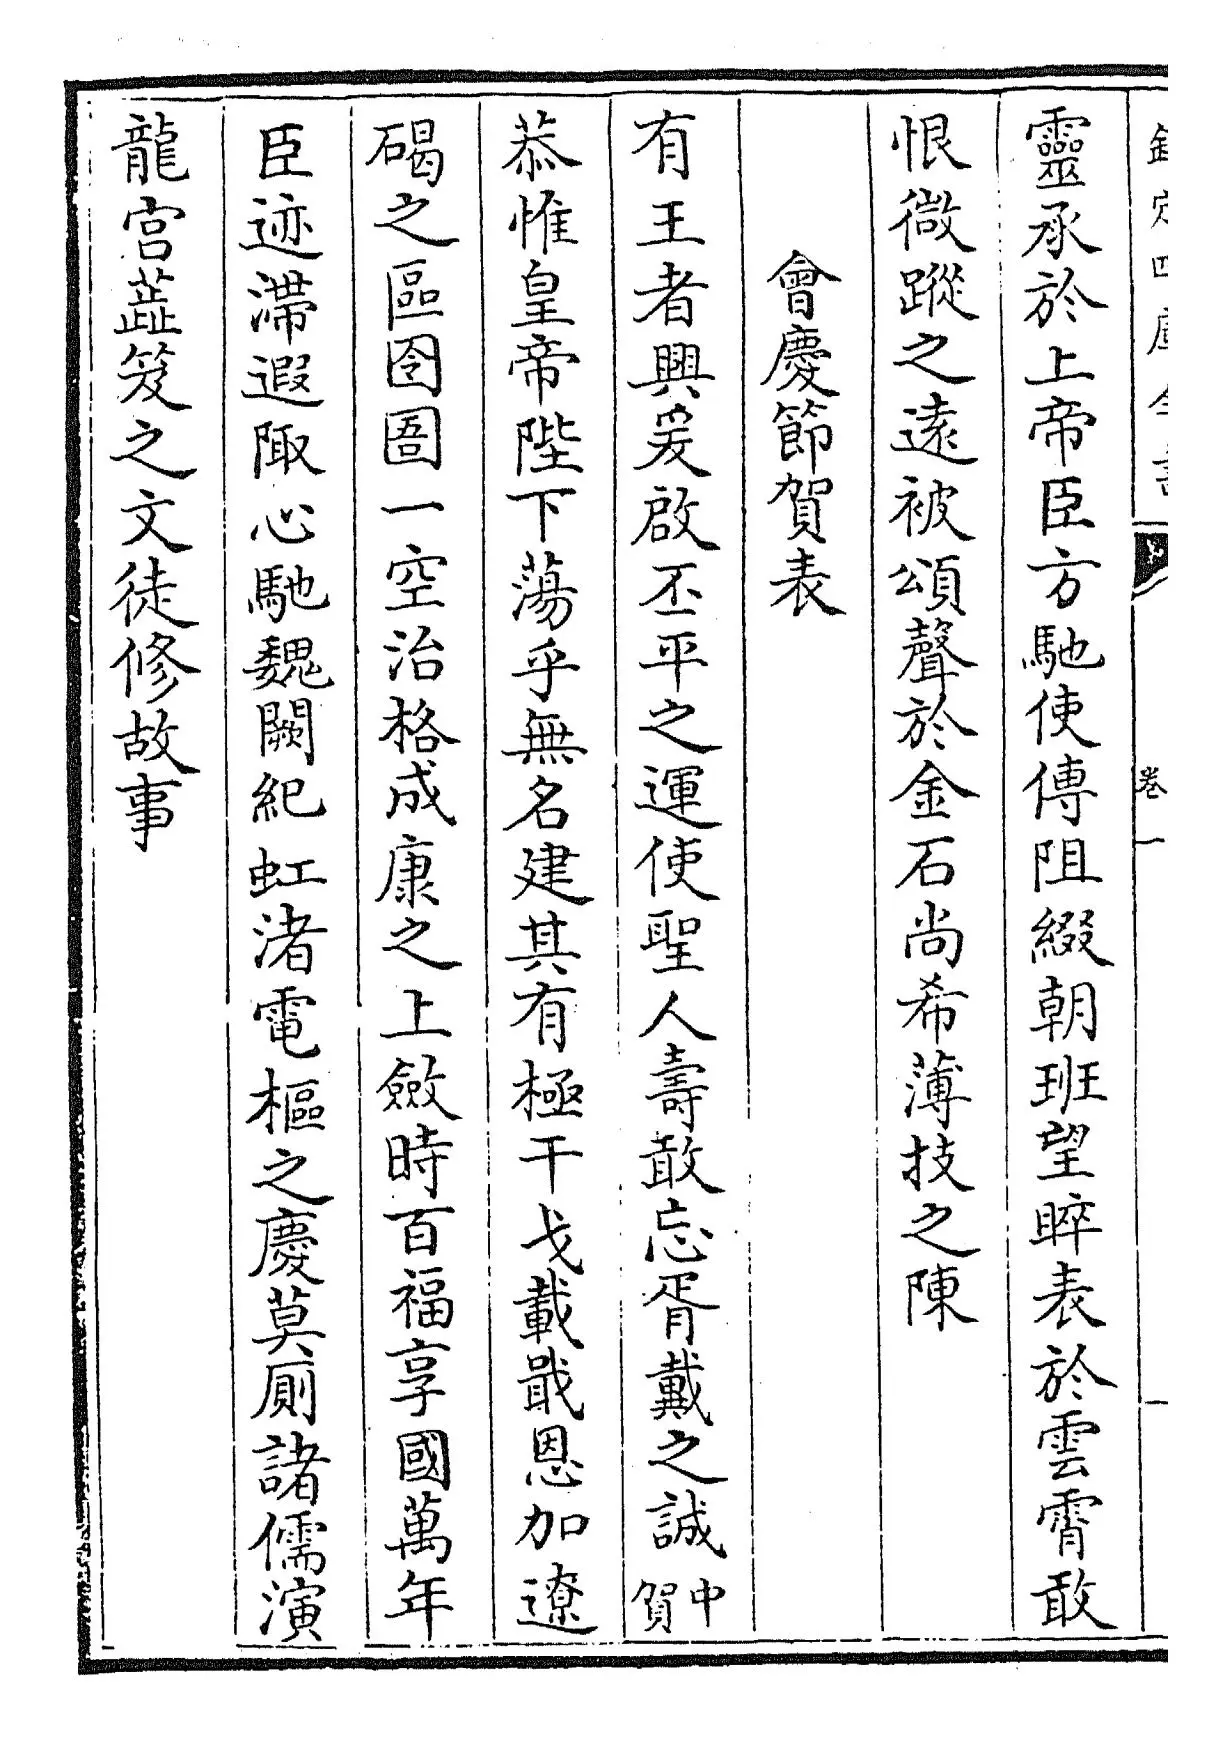 欽定四庫全書
卷一
靈承於上帝臣方馳使傳阻綴朝班望睟表於雲霄敢
恨微蹤之遠被頌聲於金石尚希薄技之陳
會慶節賀表
有王者興爰啟丕平之運使聖人壽敢忘胥戴之誠中賀
恭惟皇帝陛下蕩乎無名建其有極干戈載戢恩加遼
碣之區囹圄一空治格成康之上斂時百福享國萬年
臣迹滯遐陬心馳魏闕紀虹渚電樞之慶莫厠諸儒演
龍宮蕋笈之文徒修故事